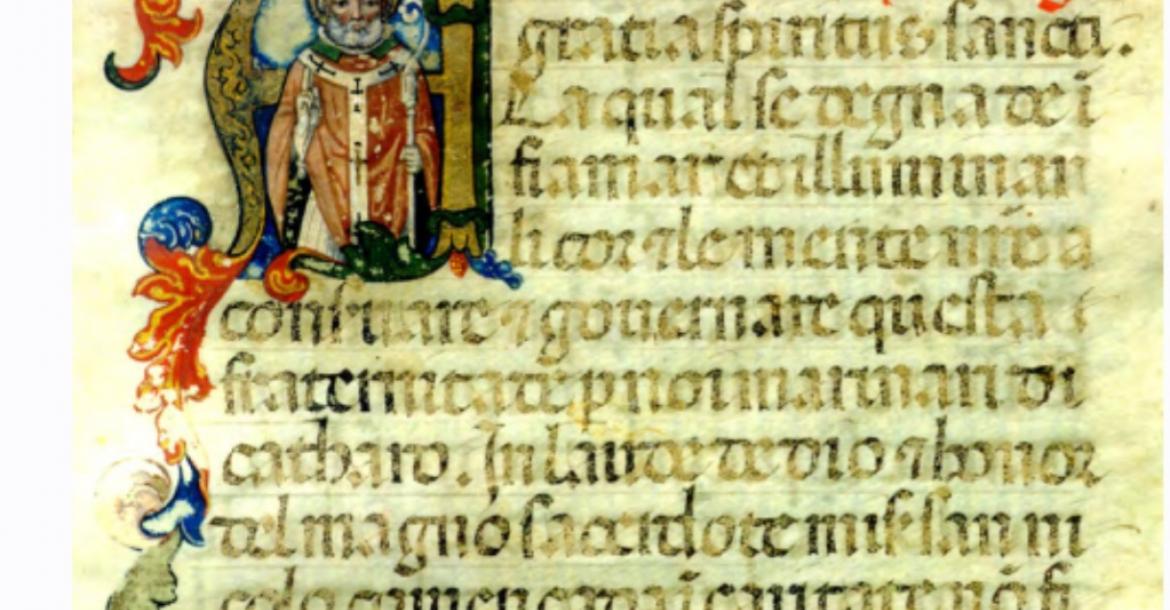 gratia spiritus sancti.
La qual se degna de i
fiamar et illuminar
li cor ⁊ le mente nr̄e a
conservare ⁊ governare questa
fraternitade p noi marinari di
catharo. In laude de dio ⁊ honor
del magno sacerdote mis san ni
colo